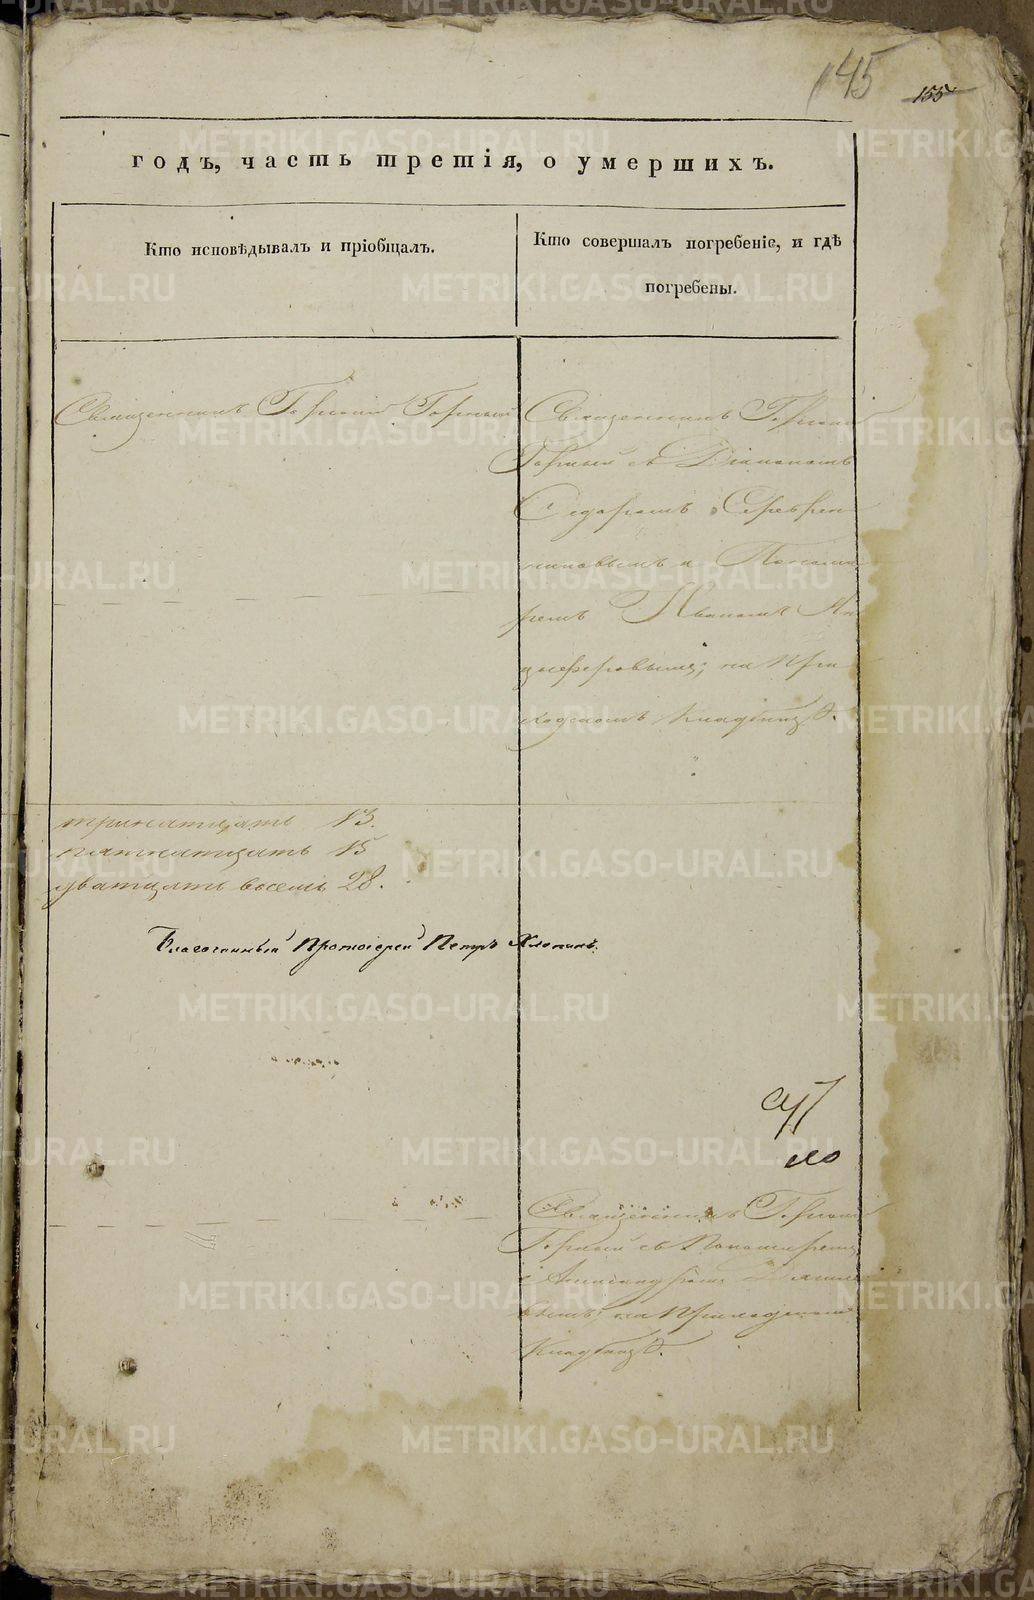 145
155
годъ, часть третія, о умершихъ.
Кто исповѣдывалъ и пріобщалъ.
Кто совершалъ погребеніе, и гдѣ
погребены.
Священникъ Горный
Священникъ
Горный съ Діакономъ
Сидоромъ Серебрен
никовымъ и Понома
ремъ Иваномъ Ан
цыферовымъ; на При
ходскомъ Кладбищѣ.
тринатцать 13.
пятнатцать 15
дватцать восемь 28.
Благочинный Протоіерей Петръ Хлопинъ.
Священникъ
Горный съ Пономаремъ
Александромъ
на Приходскомъ
Кладбищѣ.
METRIKI.GASO-URAL.RU